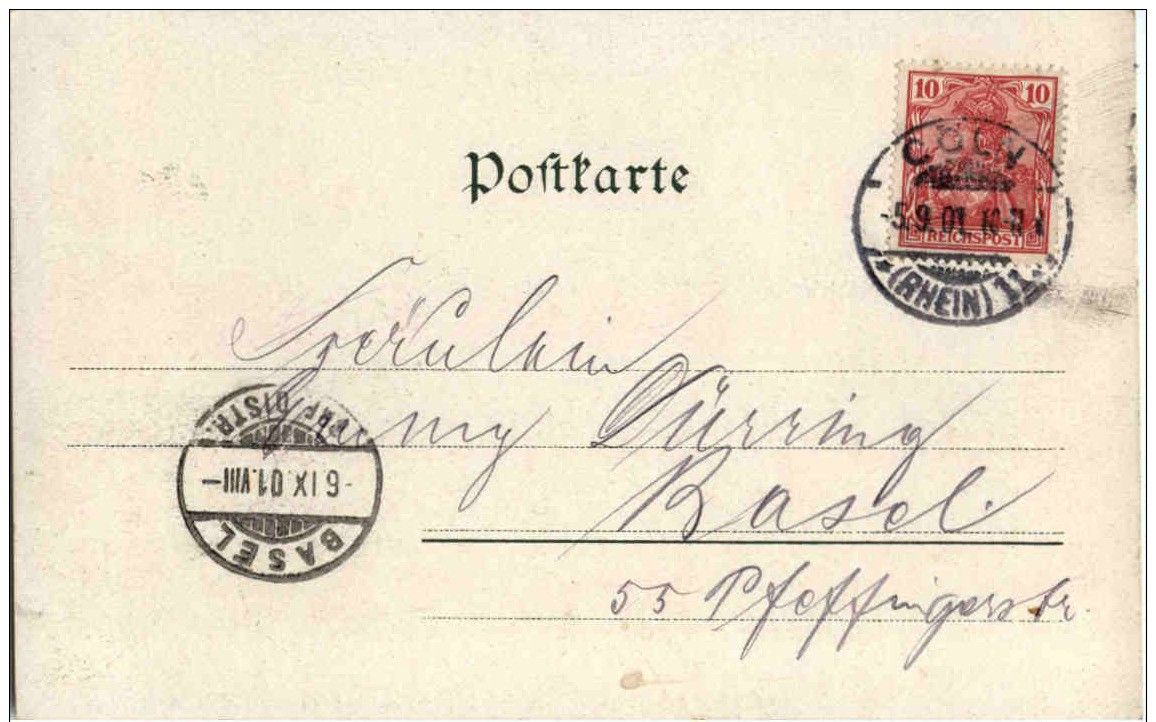 10 10
REICHSPOST
CÖLN
-5.9.01 10-11
(RHEIN) 11
Postkarte
Fräulein
Dürring
Basel.
55 Pfeffingerstr.
BRF. DISTR.
-6.IX.01.VIII-
BASEL